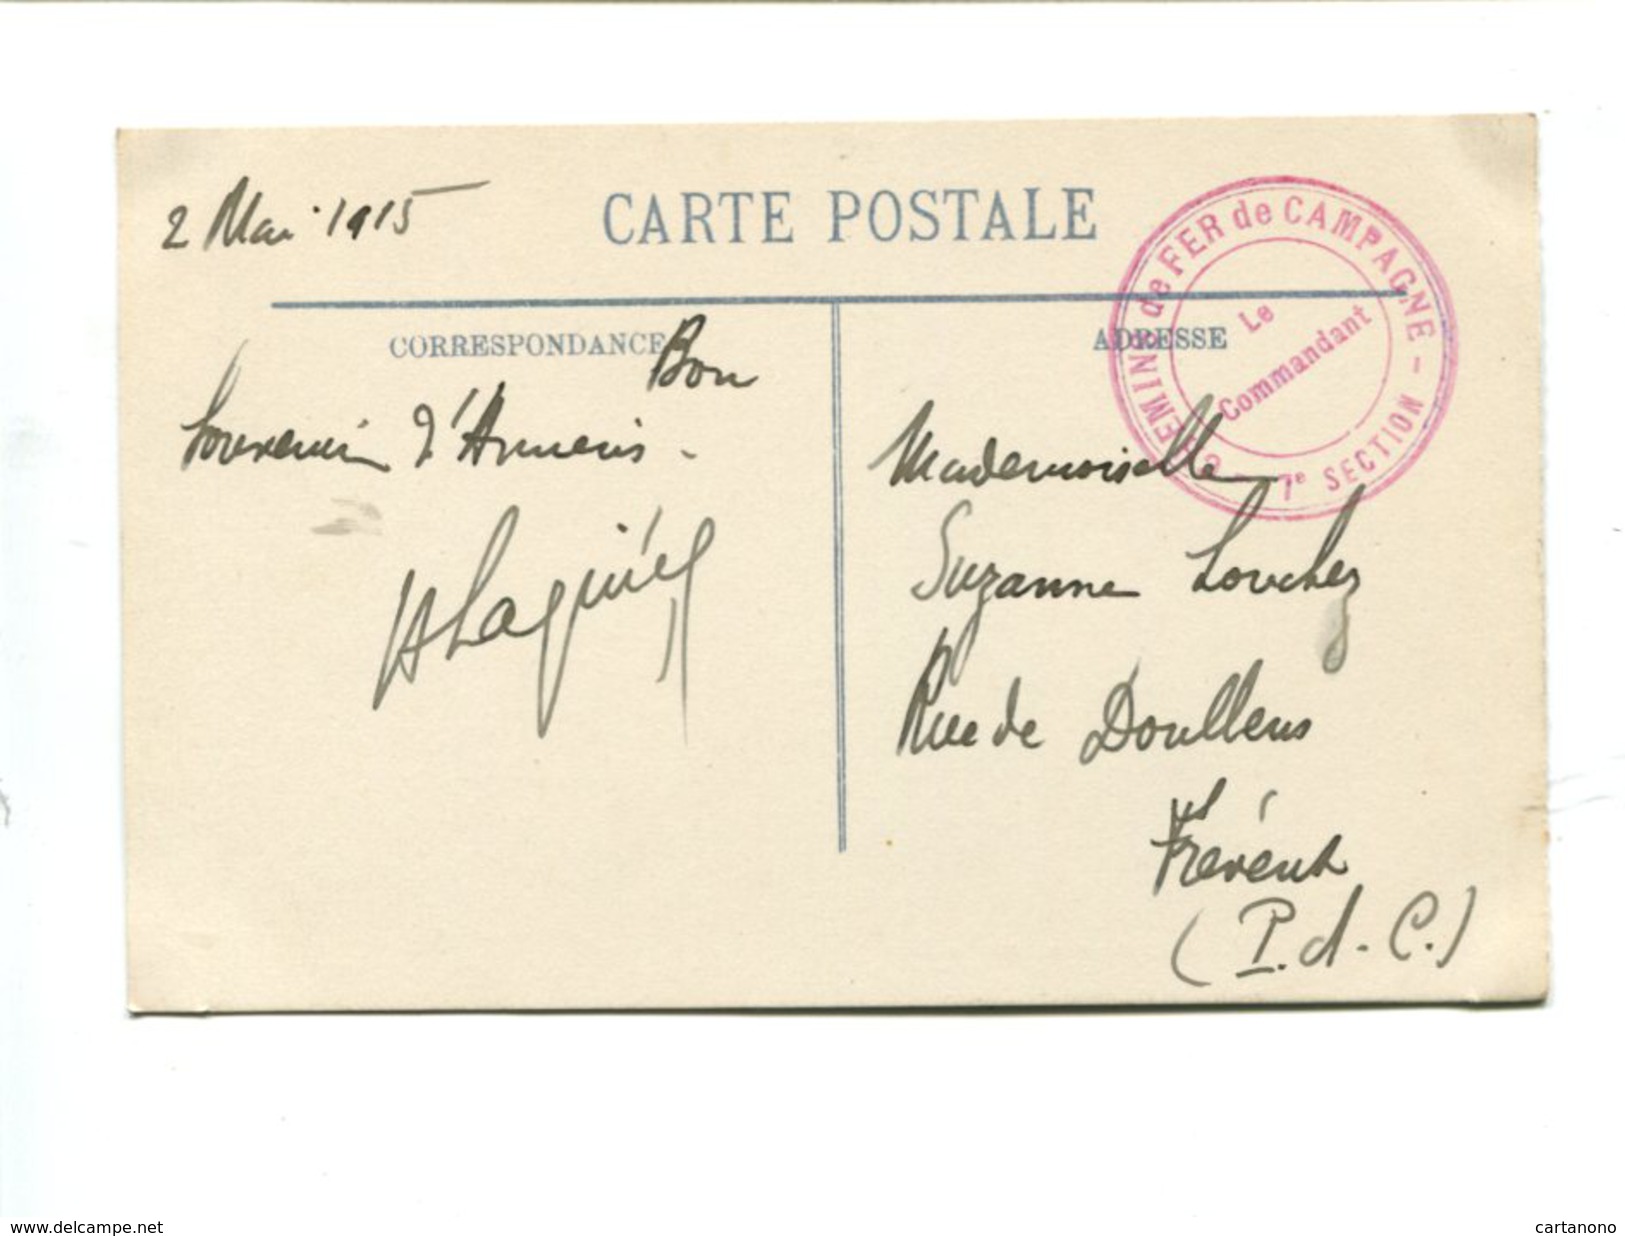 2 Mai 1915
CARTE POSTALE
CHEMINS de FER de CAMPAGNE - 7e SECTION -
Le
Commandant
CORRESPONDANCE
Bon
Souvenir d'Amiens.
ADRESSE
Mademoiselle
Suzanne Louchez
Rue de Doullens
Frévent
(P. d. C.)
www.delcampe.net
cartanono